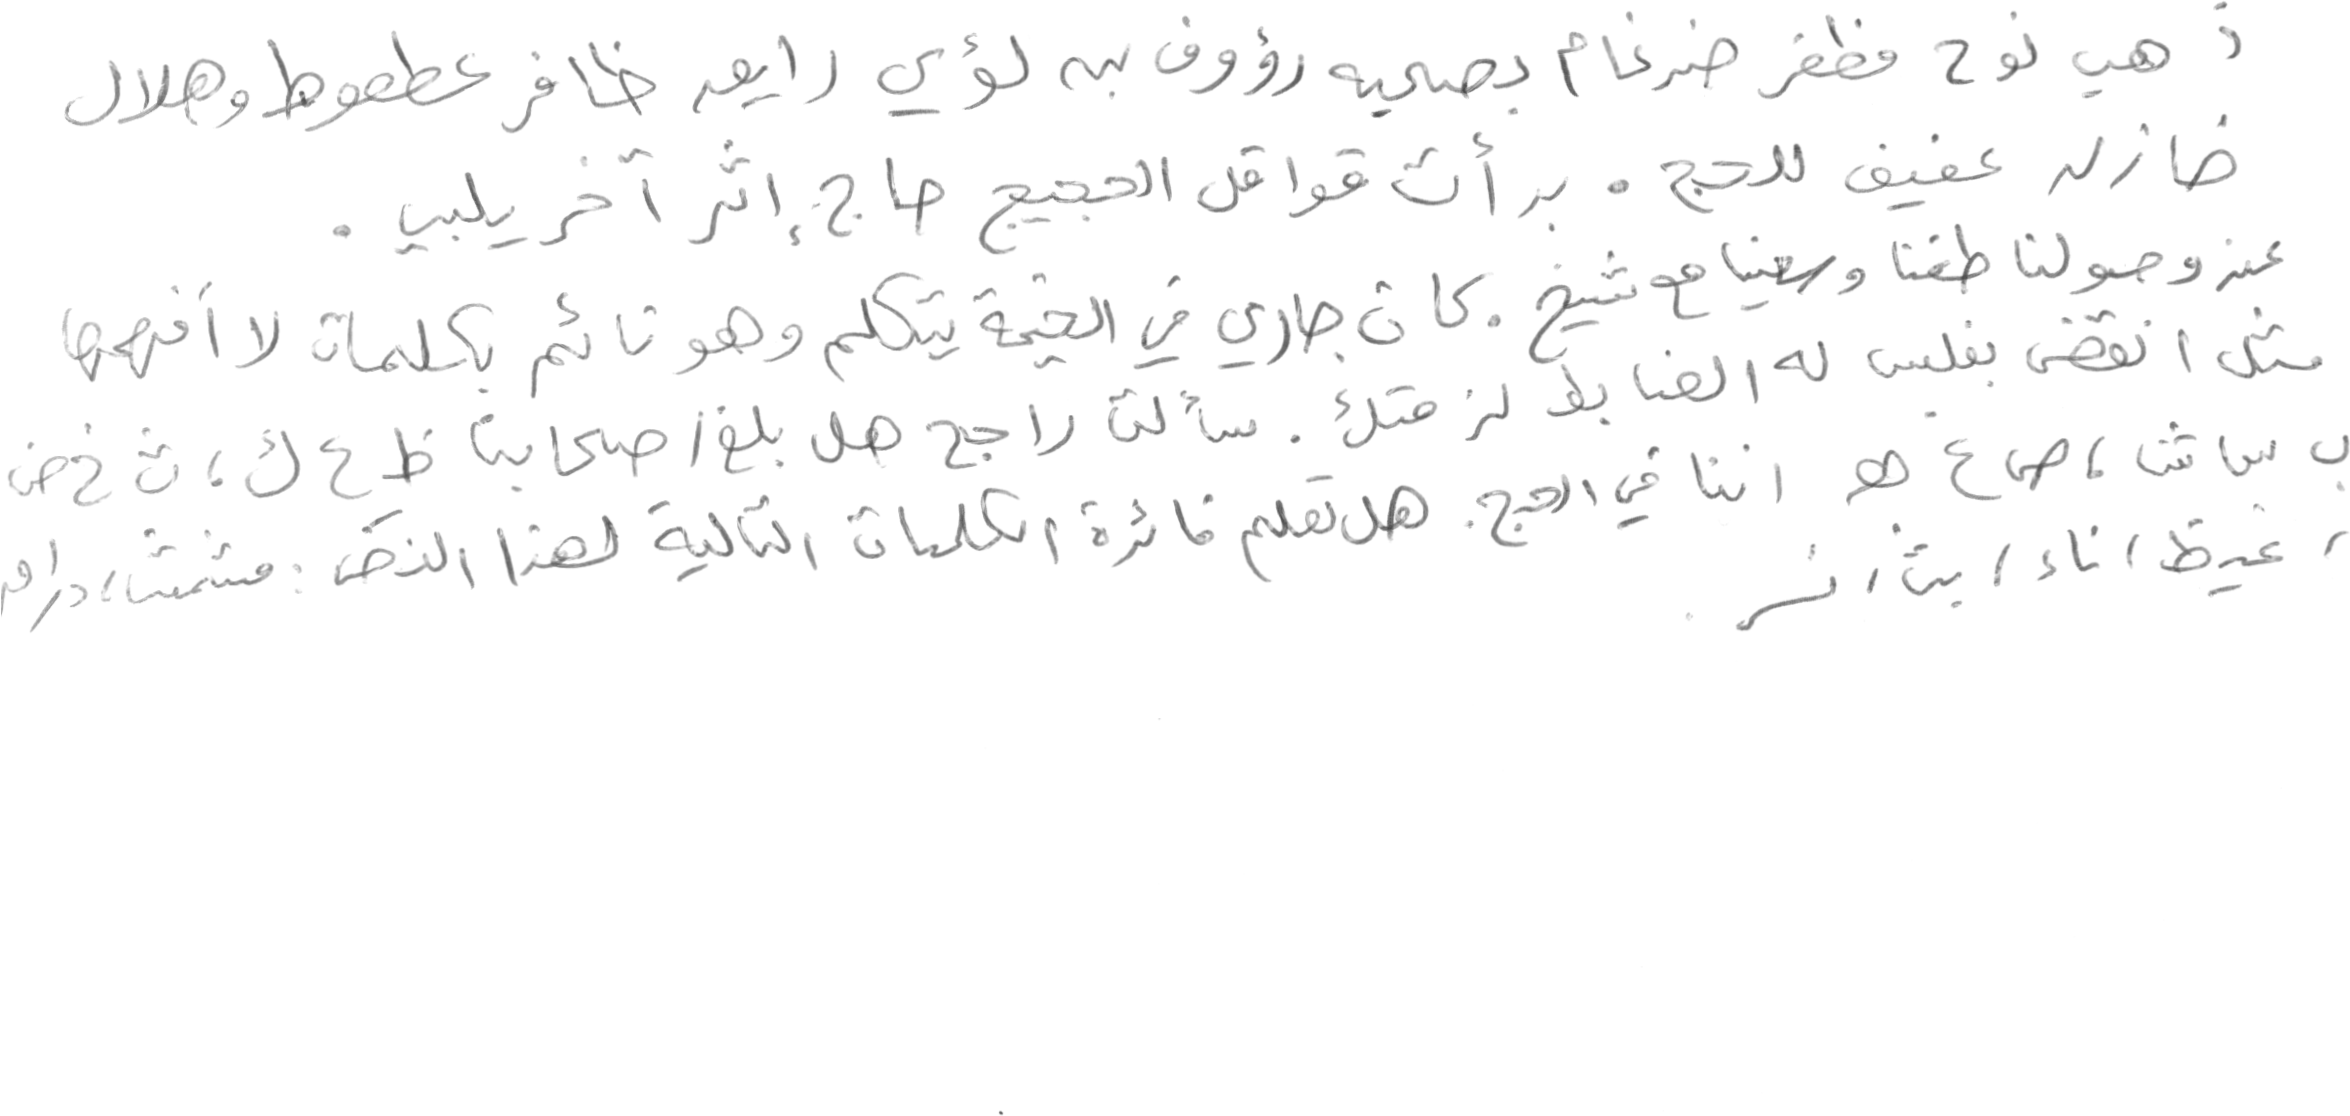 ذهب نوح مظفر ضرغام بصحبه رؤوف بهه لؤي رايعه ظافر عطعوط وهلال
ضازله عفيف للحج . بدأت قوافل الحجيج حاج إثر آخر يلبي .
عند وصولنا طفنا وسعينا مع شيخ . كان جاري في الخيمة يتكلم وهو نائم بكلمات لا أفهمها
مثل انقض بغلس له الضابط لزمتك . سألت راجح هل بلغ اصحابنا ظ ع ك ، ث خ ض
ب سا شا ، ص ع هو اننا في الحج . هل تعلم فائدة الكلمات التالية لهذا النص : مشمش ، درام
، غيظ ، ناء ، بث ، نسر .